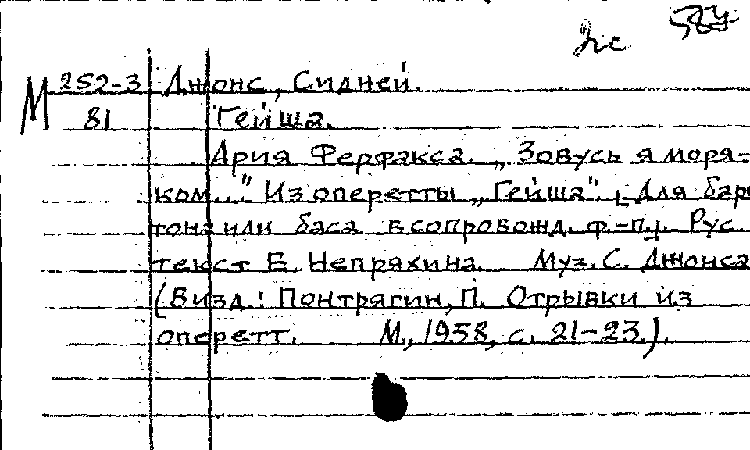 М 252-3 Джонс, Сидней.
81 Гейша.
Ария Ферфакса. „Зовусь я моря-
ком..." Из оперетты „Гейша". [Для бари
тона или баса в сопровожд. ф.-п.]. Рус.
текст Е. Непряхина. Муз. С. Джонса
(В изд.: Понтрягин, П. Отрывки из
оперетт. М., 1958, с. 21-23.).